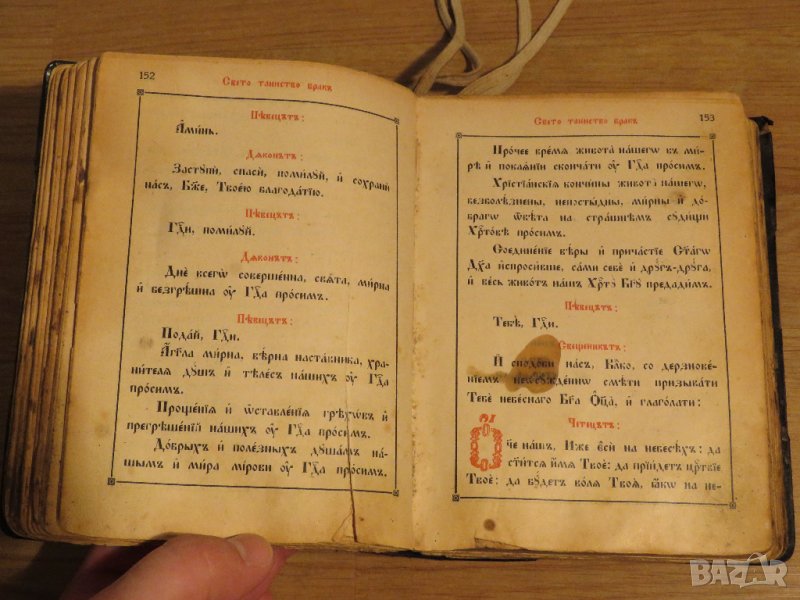 152
Свето таинство бракъ
Пѣвецътъ:
А҆ми́нь.
Дꙗконътъ:
Застꙋпѝ, спасѝ, поми́лꙋй, и҆ сохранѝ
на́съ, Бж҃е, Твое́ю благода́тїю.
Пѣвецътъ:
Гдⷭ҇и, поми́лꙋй.
Дꙗконътъ:
Днѐ всегѡ̀ соверше́нна, свѧ́та, ми́рна
и҆ безгрѣ́шна ᲂу҆ Гдⷭ҇а про́симъ.
Пѣвецътъ:
Пода́й, Гдⷭ҇и.
А҆́гг҃ла ми́рна, вѣ́рна наста́вника, хра-
ни́телѧ дꙋ́шъ и҆ тѣле́съ на́шихъ ᲂу҆ Гдⷭ҇а
про́симъ.
Проще́нїѧ и҆ ѡ҆ставле́нїѧ грѣхѡ́въ и҆
прегрѣше́нїй на́шихъ ᲂу҆ Гдⷭ҇а про́симъ.
До́брыхъ и҆ поле́зныхъ дꙋша́мъ на́-
шымъ и҆ ми́ра мі́рови ᲂу҆ Гдⷭ҇а про́симъ.
Свето таинство бракъ
153
Про́чее вре́мѧ живота̀ на́шегѡ въ ми́-
рѣ и҆ покаѧ́нїи сконча́ти ᲂу҆ Гдⷭ҇а про́симъ.
Хрїстїа́нскїѧ кончи́ны живота̀ на́шегѡ,
безболѣ́зненны, непосты́дны, ми́рны и҆ до́-
брагѡ ѿвѣ́та на стра́шнѣмъ сꙋди́щи
Хрⷭ҇то́вѣ про́симъ.
Соедине́нїе вѣ́ры и҆ прича́стїе Ст҃а́гѡ
Дх҃а и҆спроси́вше, са́ми себѐ и҆ дрꙋ́гъ-дрꙋ́га,
и҆ ве́сь живо́тъ на́шъ Хрⷭ҇тꙋ̀ Бг҃ꙋ предади́мъ.
Пѣвецътъ:
Тебѣ̀, Гдⷭ҇и.
Свещеникътъ:
И҆ сподо́би на́съ, Вл҃ко, со дерзнове́-
нїемъ неѡсꙋжде́ннѡ смѣ́ти призыва́ти
Тебѐ небе́снаго Бг҃а Ѻ҆ц҃а̀, и҆ глаго́лати:
Четецътъ:
Ѻ҆́че на́шъ, И҆́же є҆сѝ на небесѣ́хъ: да
ст҃и́тсѧ и҆́мѧ Твоѐ: да прїи́детъ црⷭ҇твїе
Твоѐ: да бꙋ́детъ во́лѧ Твоѧ̀, ꙗ҆́кѡ на не-
BAZAR